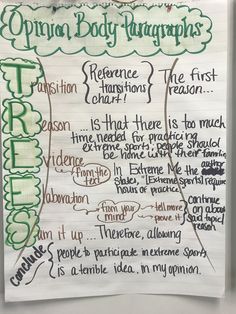 Opinion Body Paragraphs
Transition {Reference transitions chart!} The first reason...
Reason ... is that there is too much
time needed for practicing
extreme sports; people should
be home with their families
Evidence → from the text → In Extreme Me the author
States, "[Extreme sports] require
hours of practice
Elaboration → from your mind → tell more prove it } continue on about said topic/ reason
Sum it up... Therefore, allowing
conclude { people to participate in extreme sports
is a terrible idea, in my opinion.